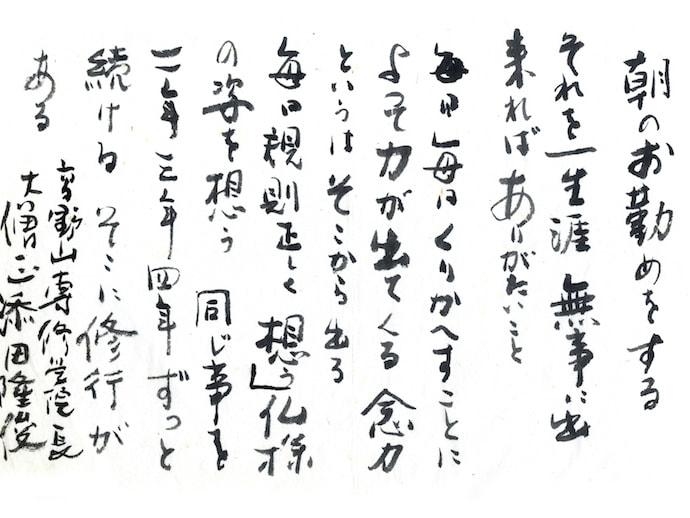 朝のお勤めをする
それを一生涯 無事に出
来ればありがたいこと
毎日毎日くりかへすことに
よって力が出てくる 念力
というはそこから出る
毎日規則正しく 想う」仏様
の姿を想う 同じ事を
二年 三年 四年 ずっと
続ける そこに修行が
ある
高野山専修学院長
大僧正添田隆俊